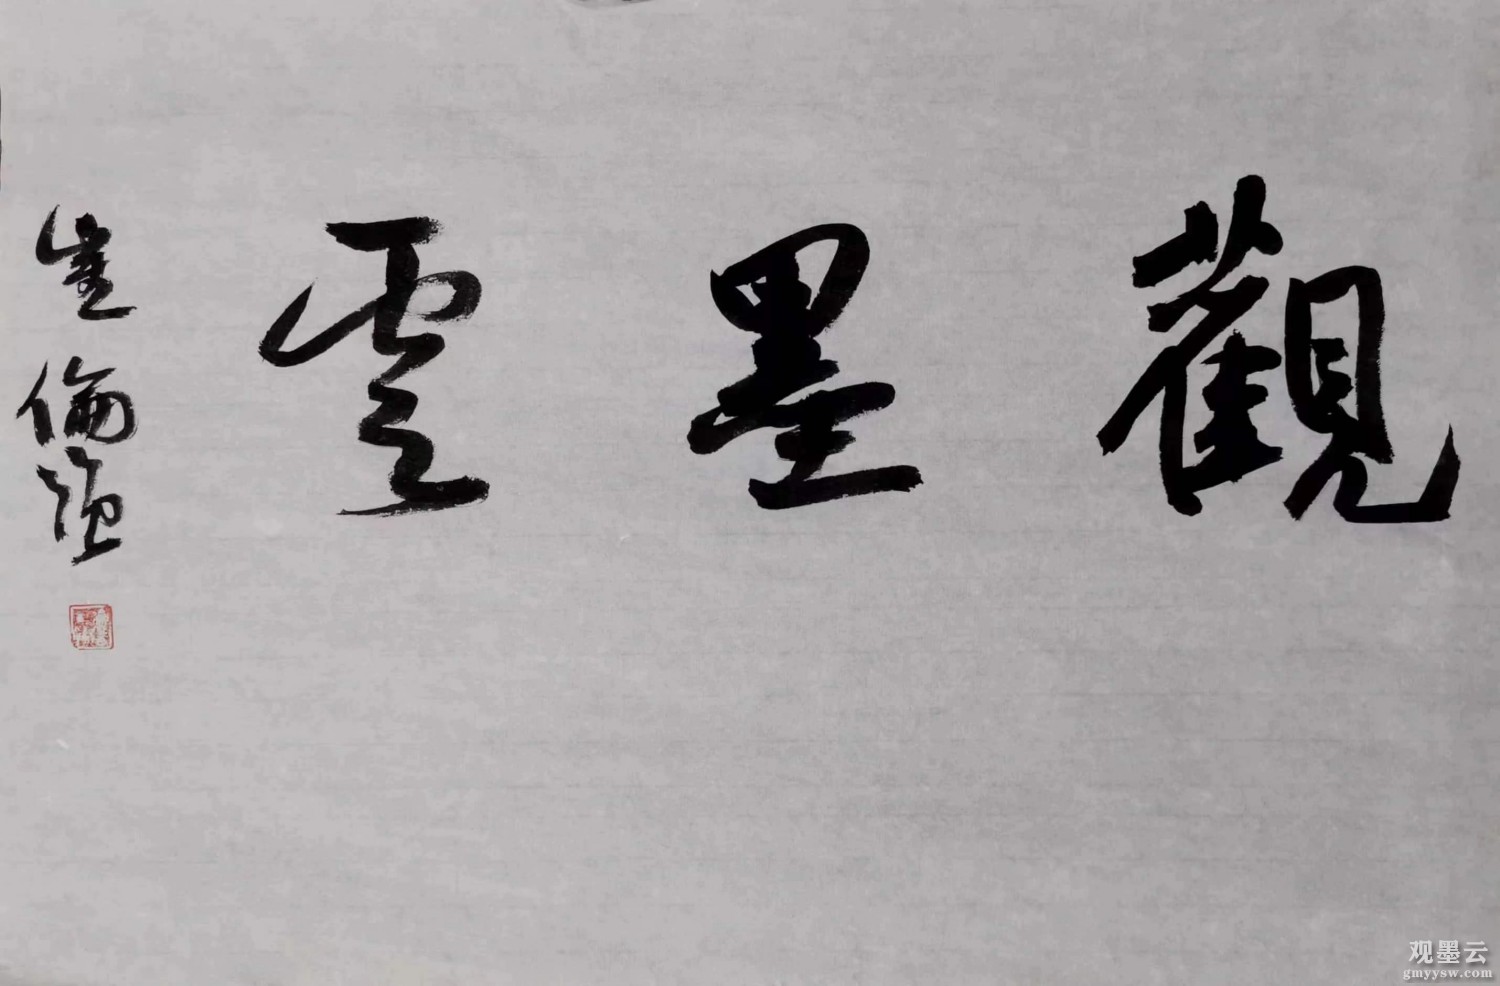 觀墨雲
崔倫強
观墨云
gmyysw.com